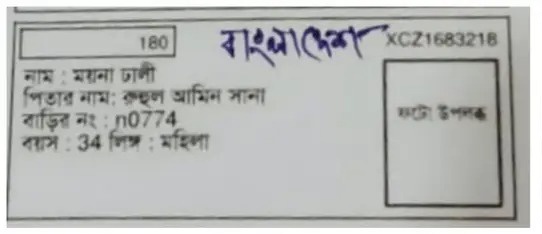 180 বাংলাদেশ XCZ1683218
নাম : ময়না ঢালী
পিতার নাম: রুহুল আমিন সানা
বাড়ির নং : n0774
বয়স : 34 লিঙ্গ : মহিলা
ফটো উপলব্ধ